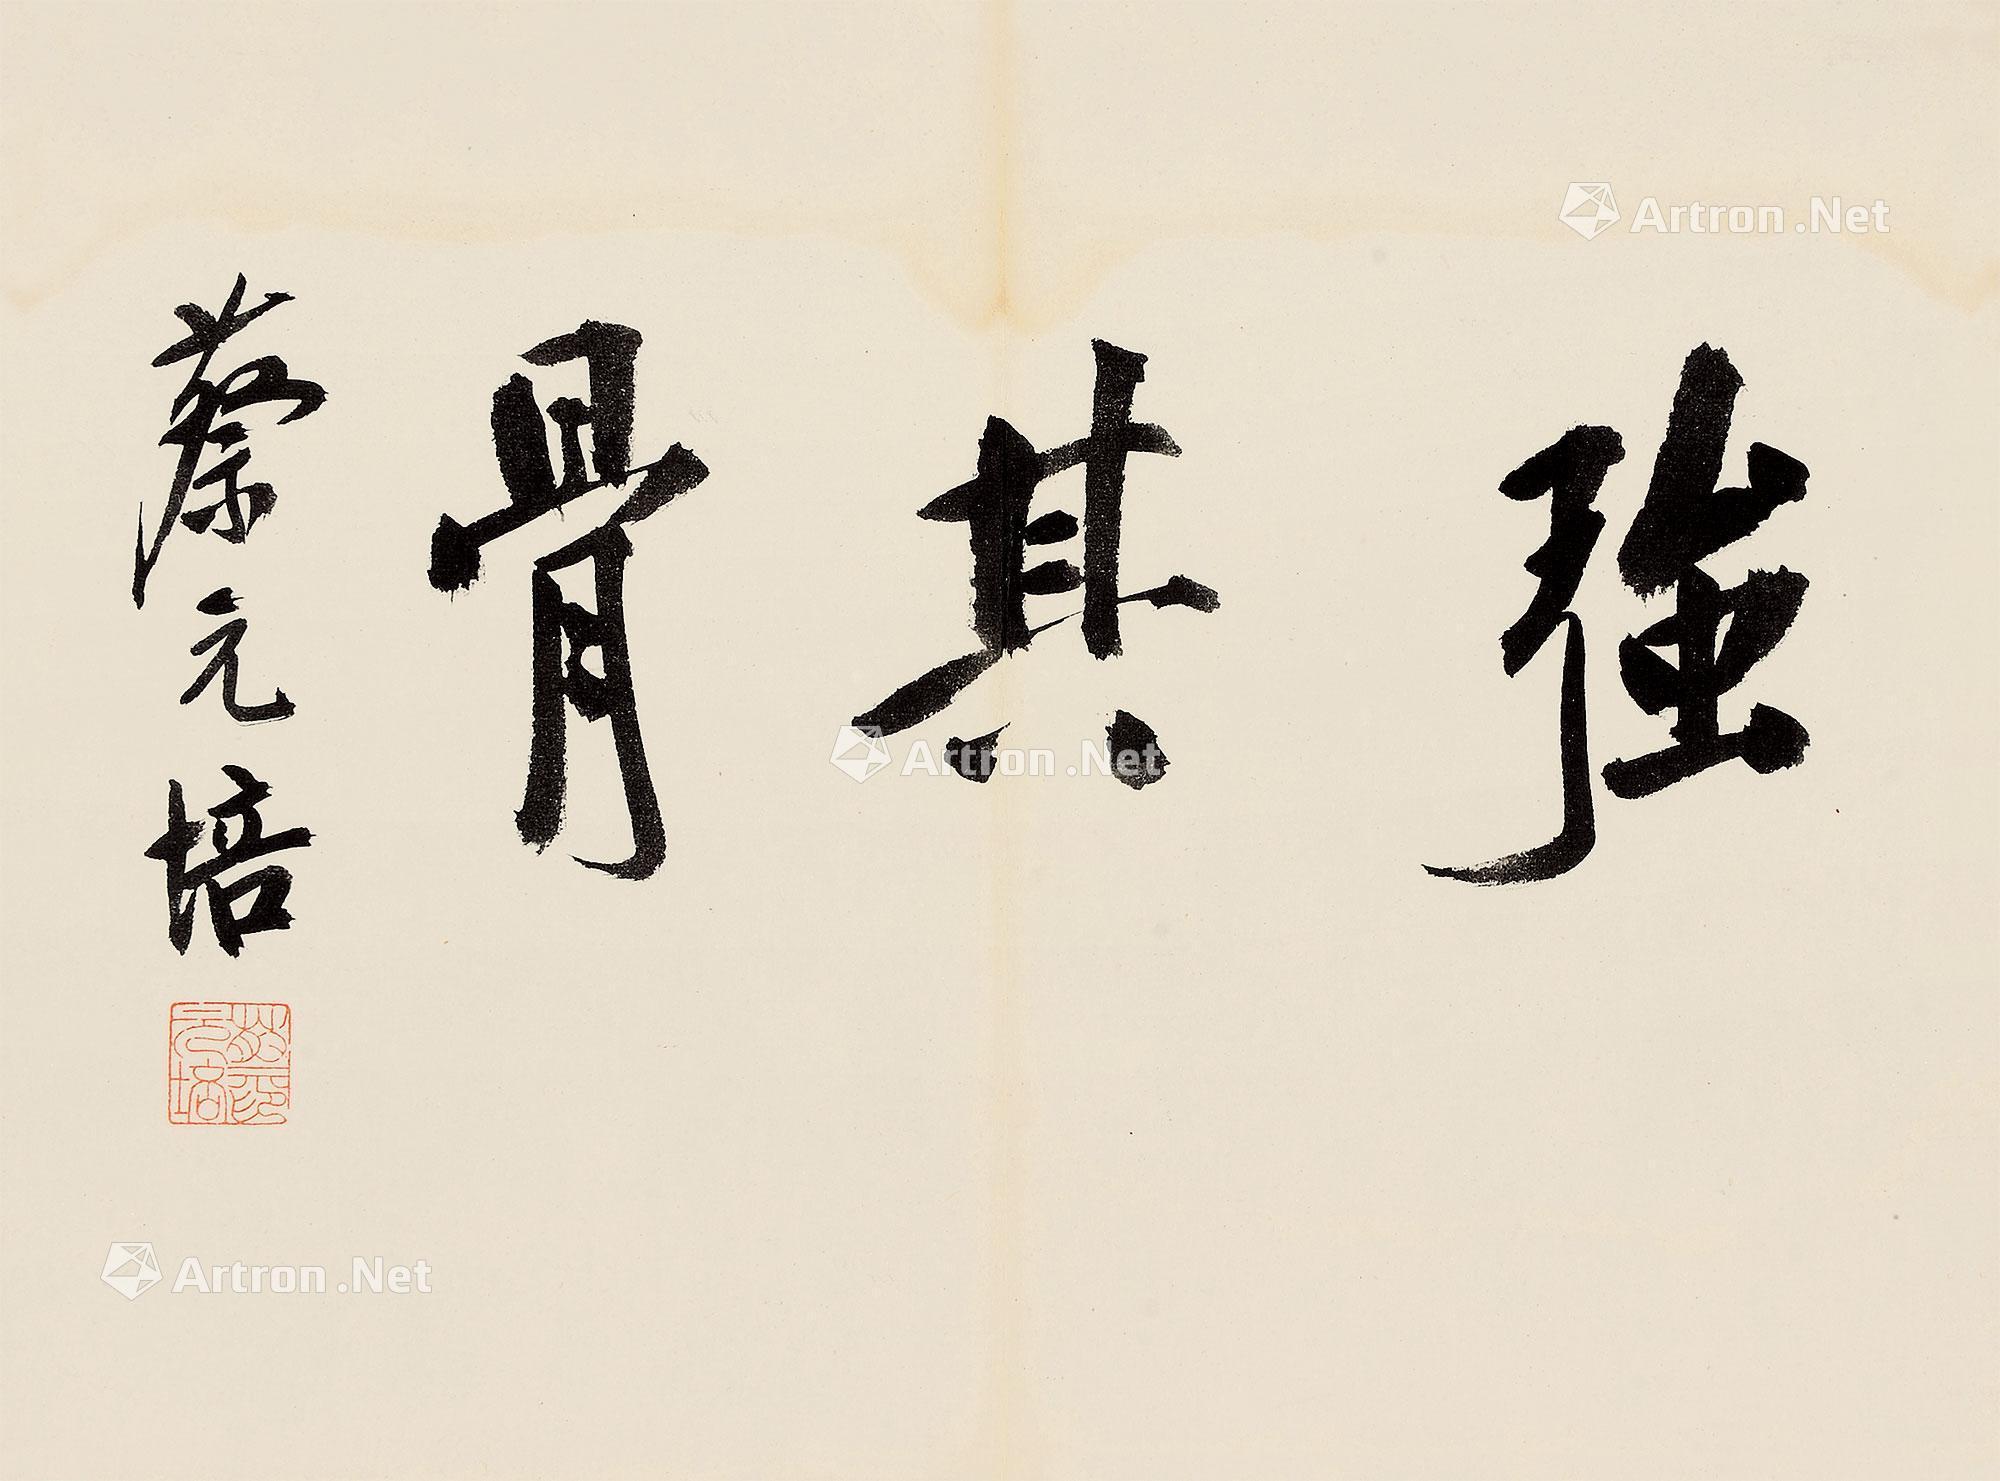 強其骨
蔡元培
蔡元培印
Artron.Net
Artron.Net
Artron.Net